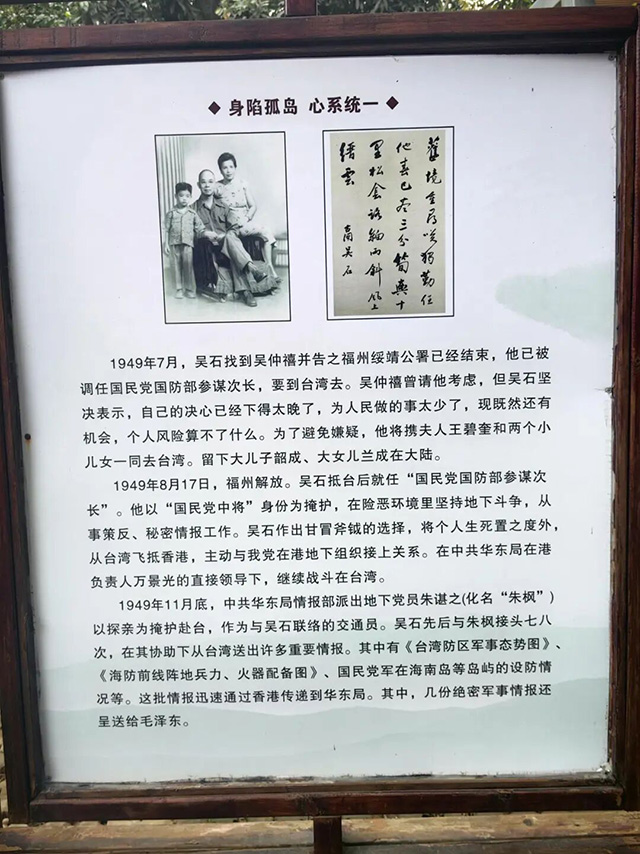 ◆ 身陷孤岛 心系统一 ◆
舊境重尋咲獨勤任
他春已三分筍輿十
里松路細雨斜風上
縉雲
吴石
1949年7月，吴石找到吴仲禧并告之福州绥靖公署已经结束，他已被
调任国民党国防部参谋次长，要到台湾去。吴仲禧曾请他考虑，但吴石坚
决表示，自己的决心已经下得太晚了，为人民做的事太少了，现既然还有
机会，个人风险算不了什么。为了避免嫌疑，他将携夫人王碧奎和两个小
儿女一同去台湾。留下大儿子韶成、大女儿兰成在大陆。
1949年8月17日，福州解放。吴石抵台后就任“国民党国防部参谋次
长”。他以“国民党中将”身份为掩护，在险恶环境里坚持地下斗争，从
事策反、秘密情报工作。吴石作出甘冒斧钺的选择，将个人生死置之度外，
从台湾飞抵香港，主动与我党在港地下组织接上关系。在中共华东局在港
负责人万景光的直接领导下，继续战斗在台湾。
1949年11月底，中共华东局情报部派出地下党员朱谌之(化名“朱枫”)
以探亲为掩护赴台，作为与吴石联络的交通员。吴石先后与朱枫接头七八
次，在其协助下从台湾送出许多重要情报。其中有《台湾防区军事态势图》、
《海防前线阵地兵力、火器配备图》、国民党军在海南岛等岛屿的设防情
况等。这批情报迅速通过香港传递到华东局。其中，几份绝密军事情报还
呈送给毛泽东。